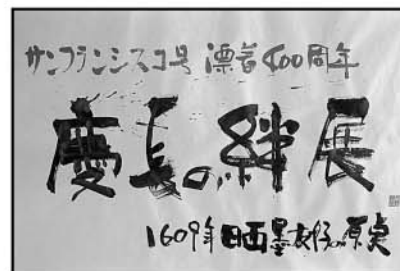 サンフランシスコ号 漂着400周年
慶長の絆展
1609年日西墨友好の原点